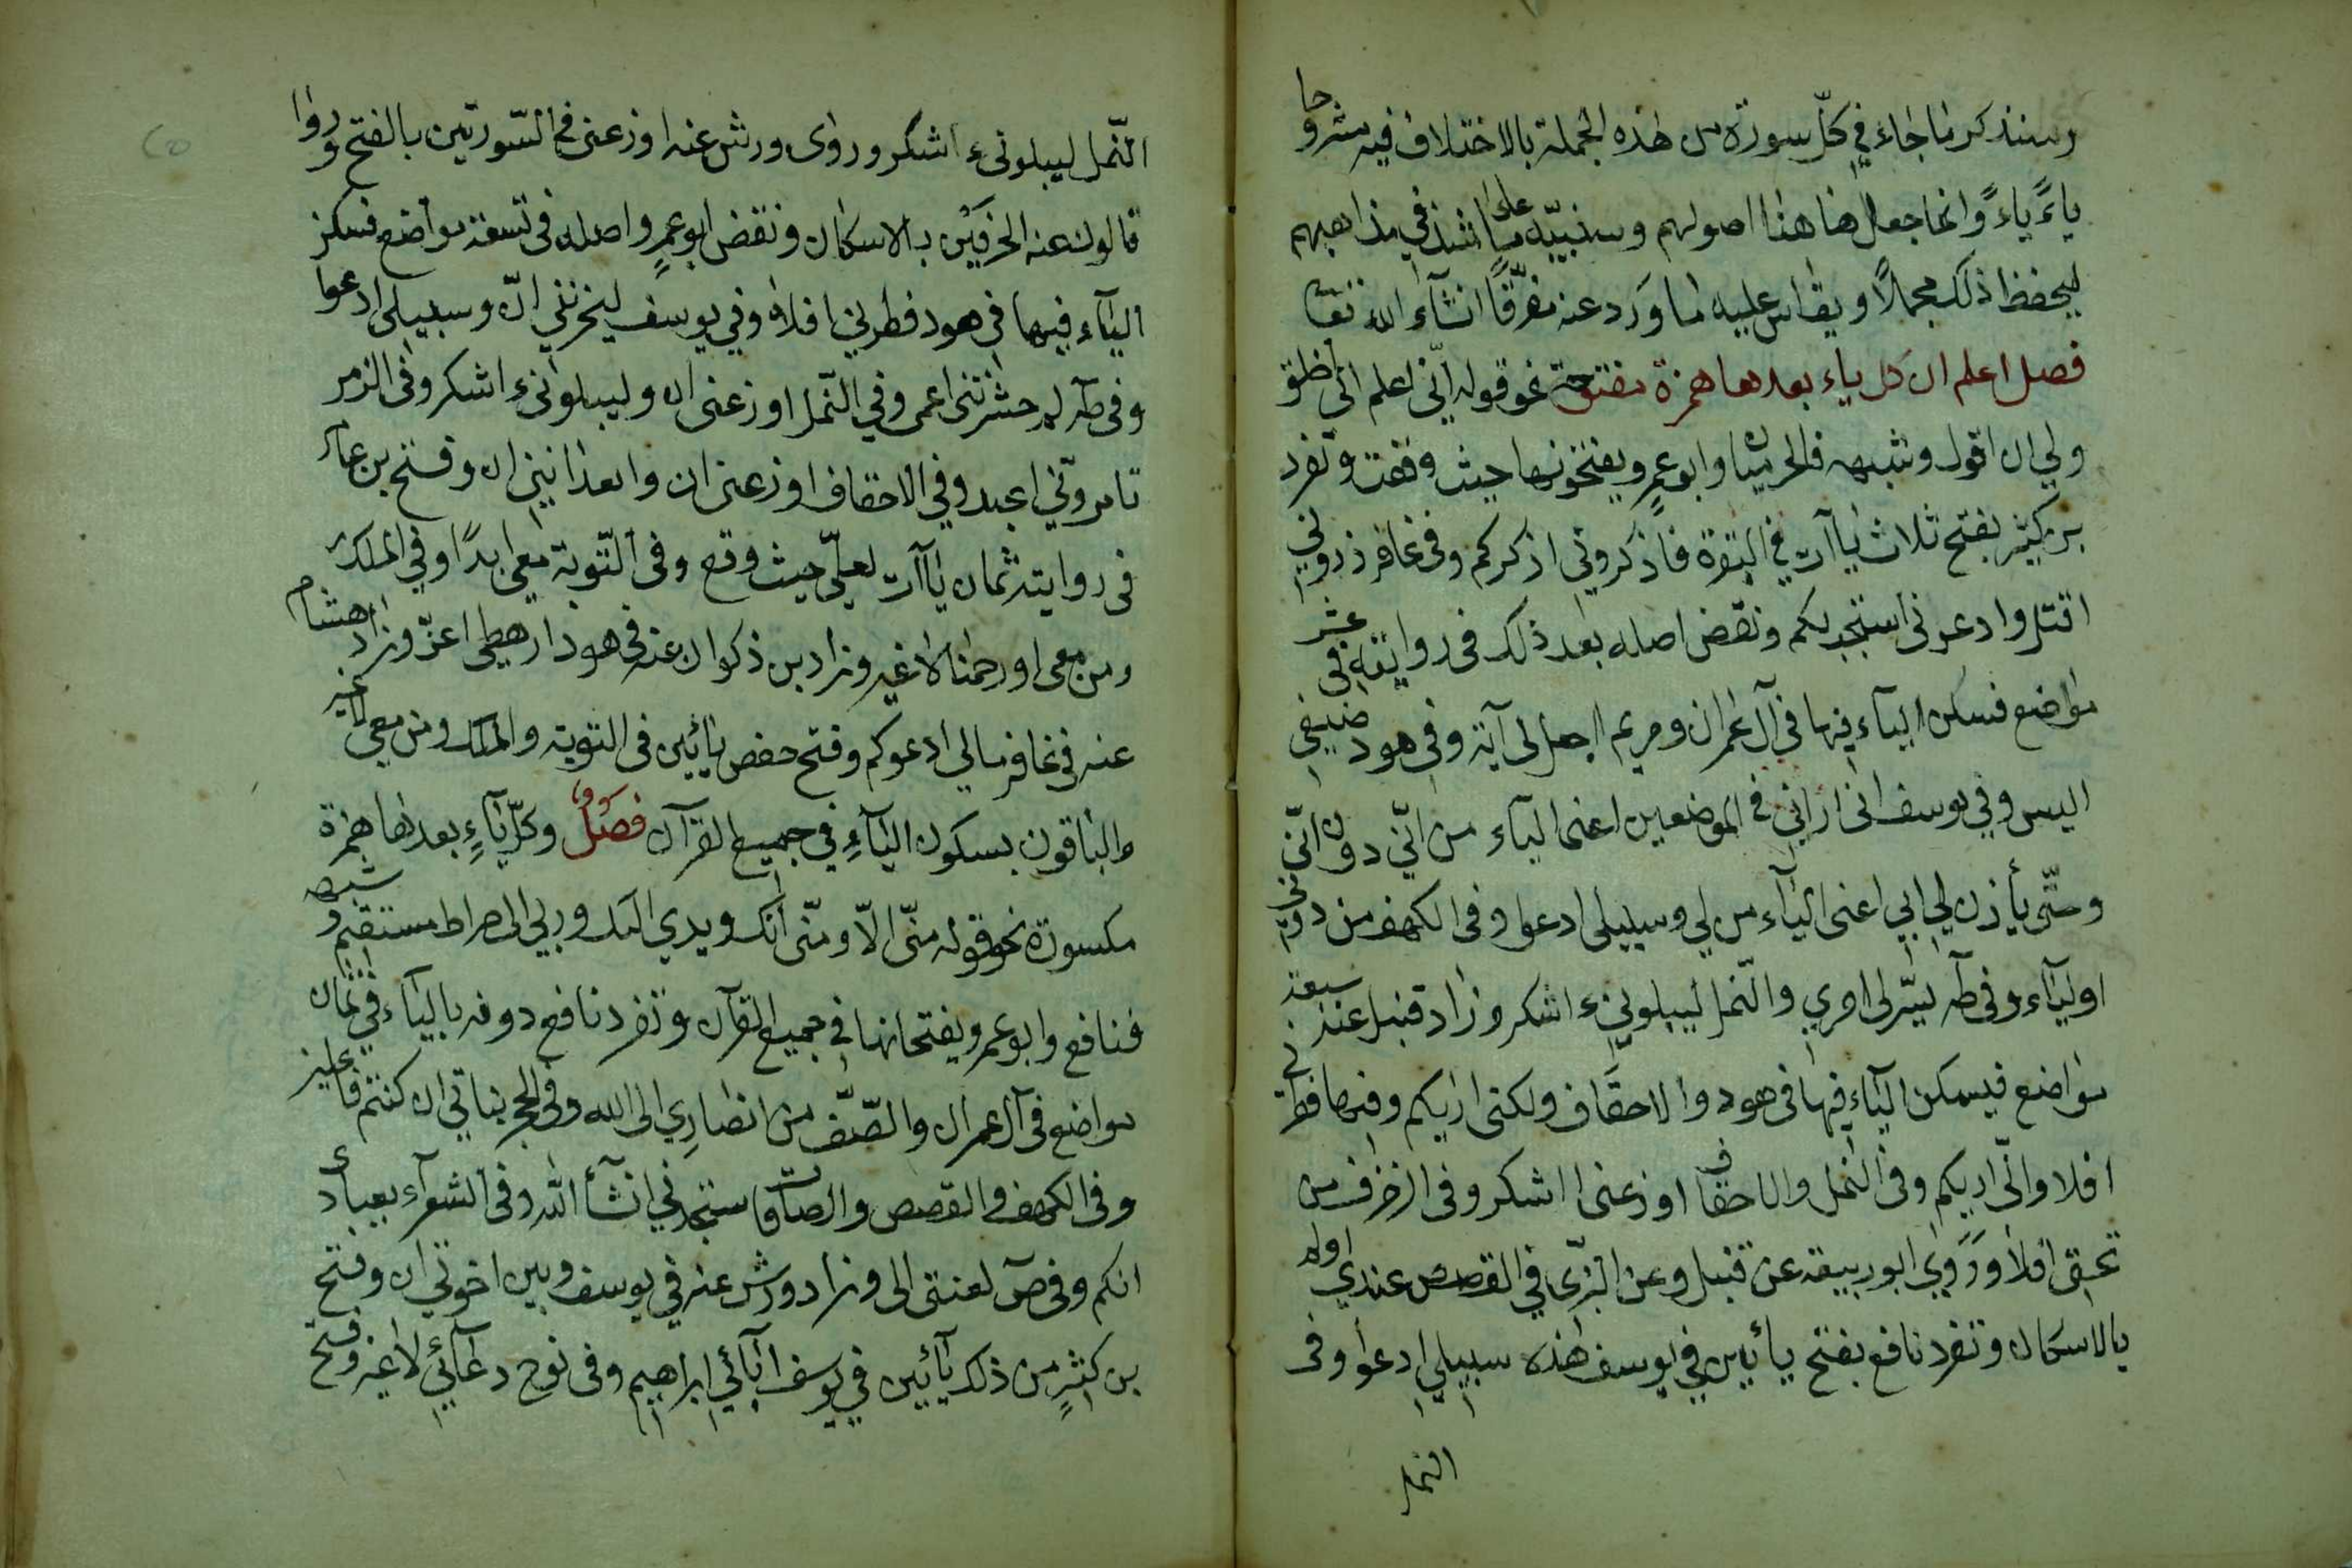 وسنذكر ما جاء في كلّ سورة من هذه الجملة بالاختلاف فيه مشروحا
ياءً ياءً وانما جعل هاهنا اصولهم وسنبيّه على ما شذ في مذاهبهم
ليحفظ ذلك مجملاً ويقاس عليه ما ورد عنه مفرّقًا انشآء الله تعا
فصل اعلم ان كل ياء بعدها همزة مفتوحة نحو قوله انّي اعلم انّي اخلق
ولي ان اقول وشبهه فالحرميان وابوعمرو يفتحونها حيث وقعت وتفرد
بن كثير بفتح ثلاث ياآت في البقرة فاذكروني اذكركم وفي غافر ذروني
اقتل وادعوني استجب لكم ونقض اصله بعد ذلك في روايتيه في عشر
مواضع فسكن اليآء فيها في آل عمران ومريم اجعل لي آية وفي هود ضيفي
اليس وفي يوسف انى ارانى في الموضعين اعنى اليآء من انّي دون انّي
وحتّى يأذن لي ابي اعنى اليآء من لي وسبيلى ادعوا وفى الكهف من دونى
اوليآء وفى طه يسّر لى امري والنّمل ليبلونىء اشكر وزاد قنبل عنه سبعة
مواضع فيسكن اليآء فيها فى هود والاحقاف ولكنى اريكم وفيها فطرنى
افلا وانّى اريكم وفى النمل والاحقاف اوزعنى ان اشكر وفى الزخرف من
تحتى افلا وروى ابو ربيعة عن قنبل وعن البزّى في القصص عندي اولم
بالاسكان وتفرد نافع بفتح يائين في يوسف هذه سبيلي ادعوا وفى
النمل
النّمل ليبلونىء اشكر وروى ورش عنه اوزعنى في السّورتين بالفتح وروا
قالون عنه الحرفين بالاسكان ونقض ابوعمرو اصله فى تسعة مواضع فسكن
اليآء فيها في هود فطرني افلا وفي يوسف ليحزنني ان وسبيلى ادعوا
وفى طه لم حشرتنى اعمى وفي النّمل اوزعنى ان وليبلونىء اشكر وفى الزمر
تامرونّي اعبد وفي الاحقاف اوزعنى ان واتعداننى ان وفتح بن عامر
فى روايتيه ثمان ياآت لعلّي حيث وقع وفى التّوبة معى ابدًا وفي الملك
ومن معى او رحمنا لا غير وزاد بن ذكوان عنه فى هود ارهطى اعزّ وزاد هشام
عنه في غافر مالي ادعوكم وفتح حفص يائين فى التوبة والملك ومن معى لا غير
والباقون بسكون اليآء في جميع القرآن فصل وكلّ يآءٍ بعدها همزة
مكسورة نحو قوله منّى الّا ومنّى انك ويدي اليك وربي الى صراط مستقيم وشبهه
فنافع وابوعمرو يفتحانها في جميع القرآن وتفرد نافع دونه باليآء في ثمان
مواضع فى آل عمران والصّف من انصاري الى الله وفى الحجر بناتي ان كنتم فاعلين
وفى الكهف والقصص والصآفات ستجدنى انشآء الله وفى الشعرآء بعبادى
انكم وفى صٓ لعنتى الى وزاد ورش عنه في يوسف وبين اخوتي ان وفتح
بن كثير من ذلك يآئين في يوسف آبائي ابراهيم وفى نوح دعآئي لا غير وفتح